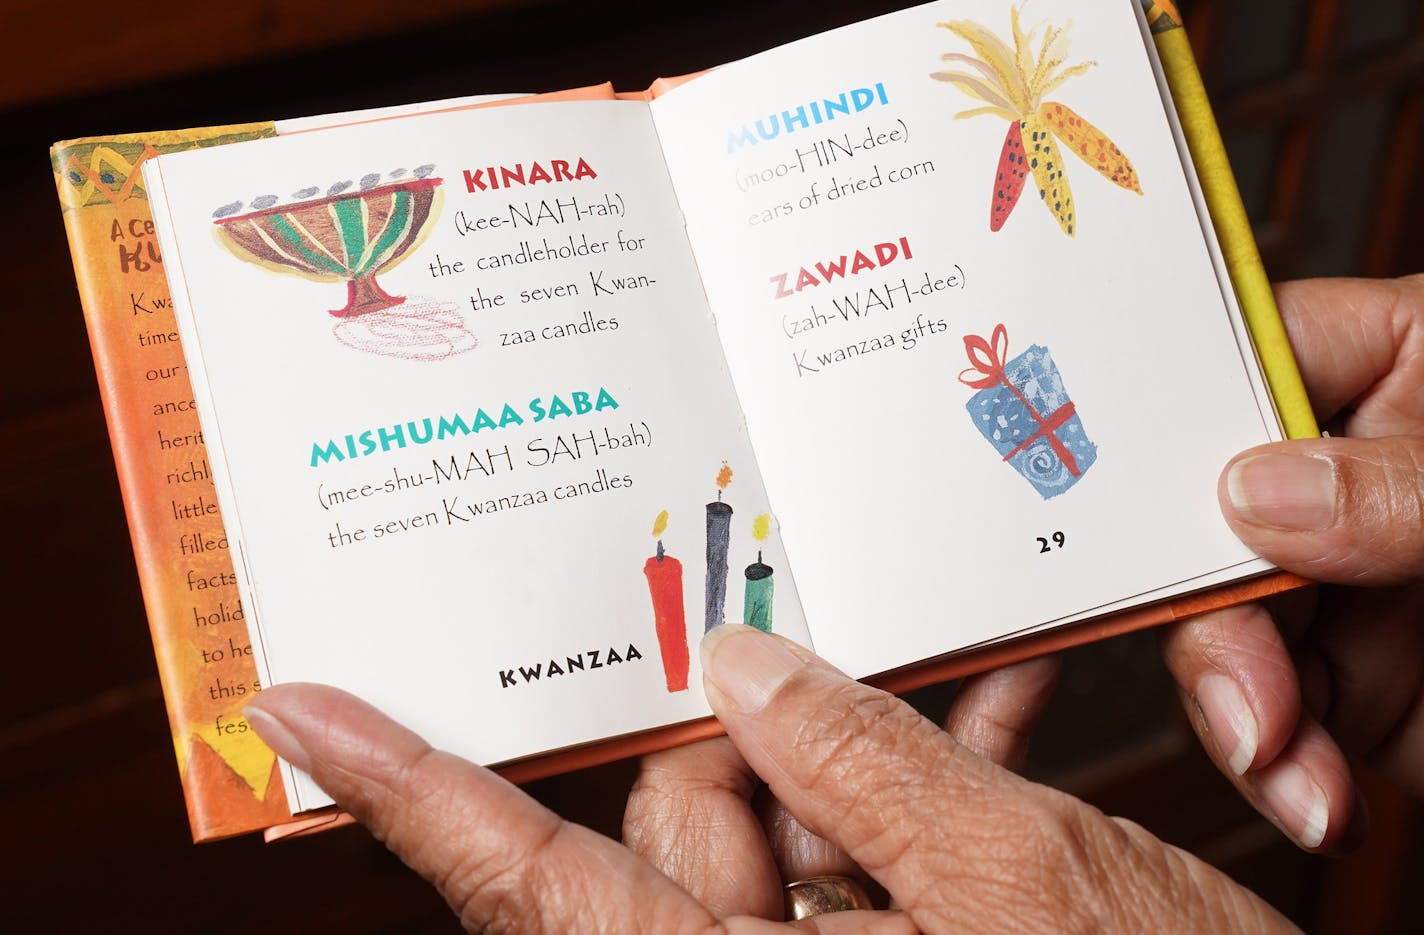 A Ce
Kwa
time
our
ance
herit
richl
little
filled
facts
holid
to he
this s
fes
KINARA
(kee-NAH-rah)
the candleholder for
the seven Kwan-
zaa candles
MISHUMAA SABA
(mee-shu-MAH SAH-bah)
the seven Kwanzaa candles
KWANZAA
MUHINDI
(moo-HIN-dee)
ears of dried corn
ZAWADI
(zah-WAH-dee)
Kwanzaa gifts
29